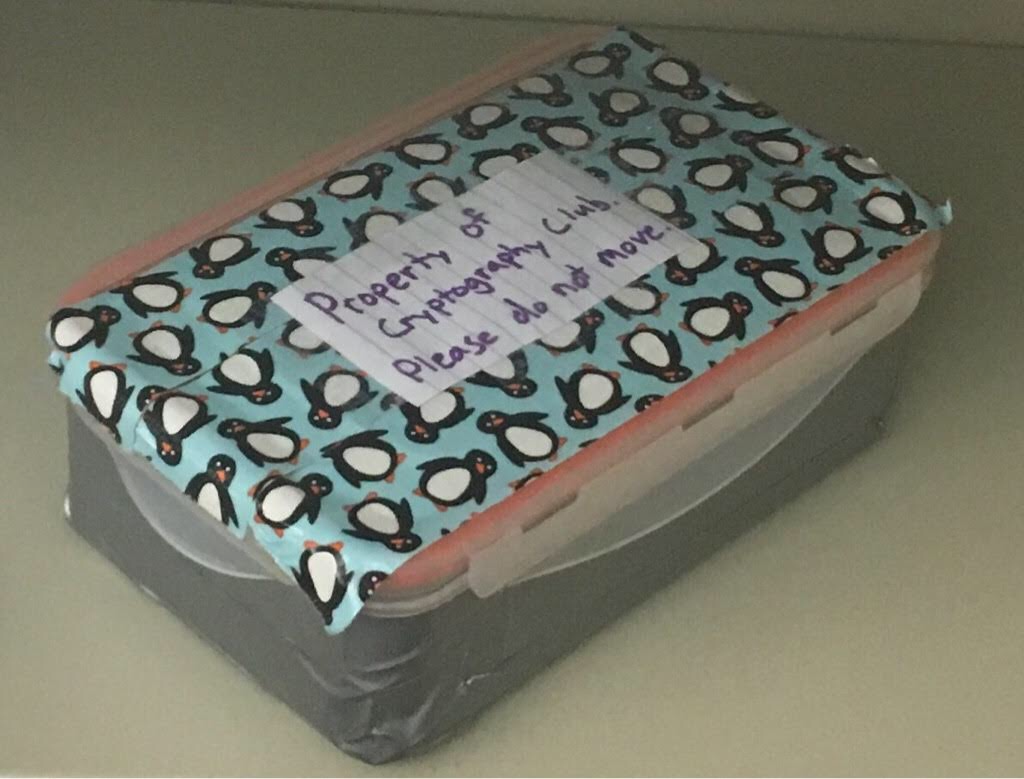 Property of
Cryptography Club.
Please do not move.